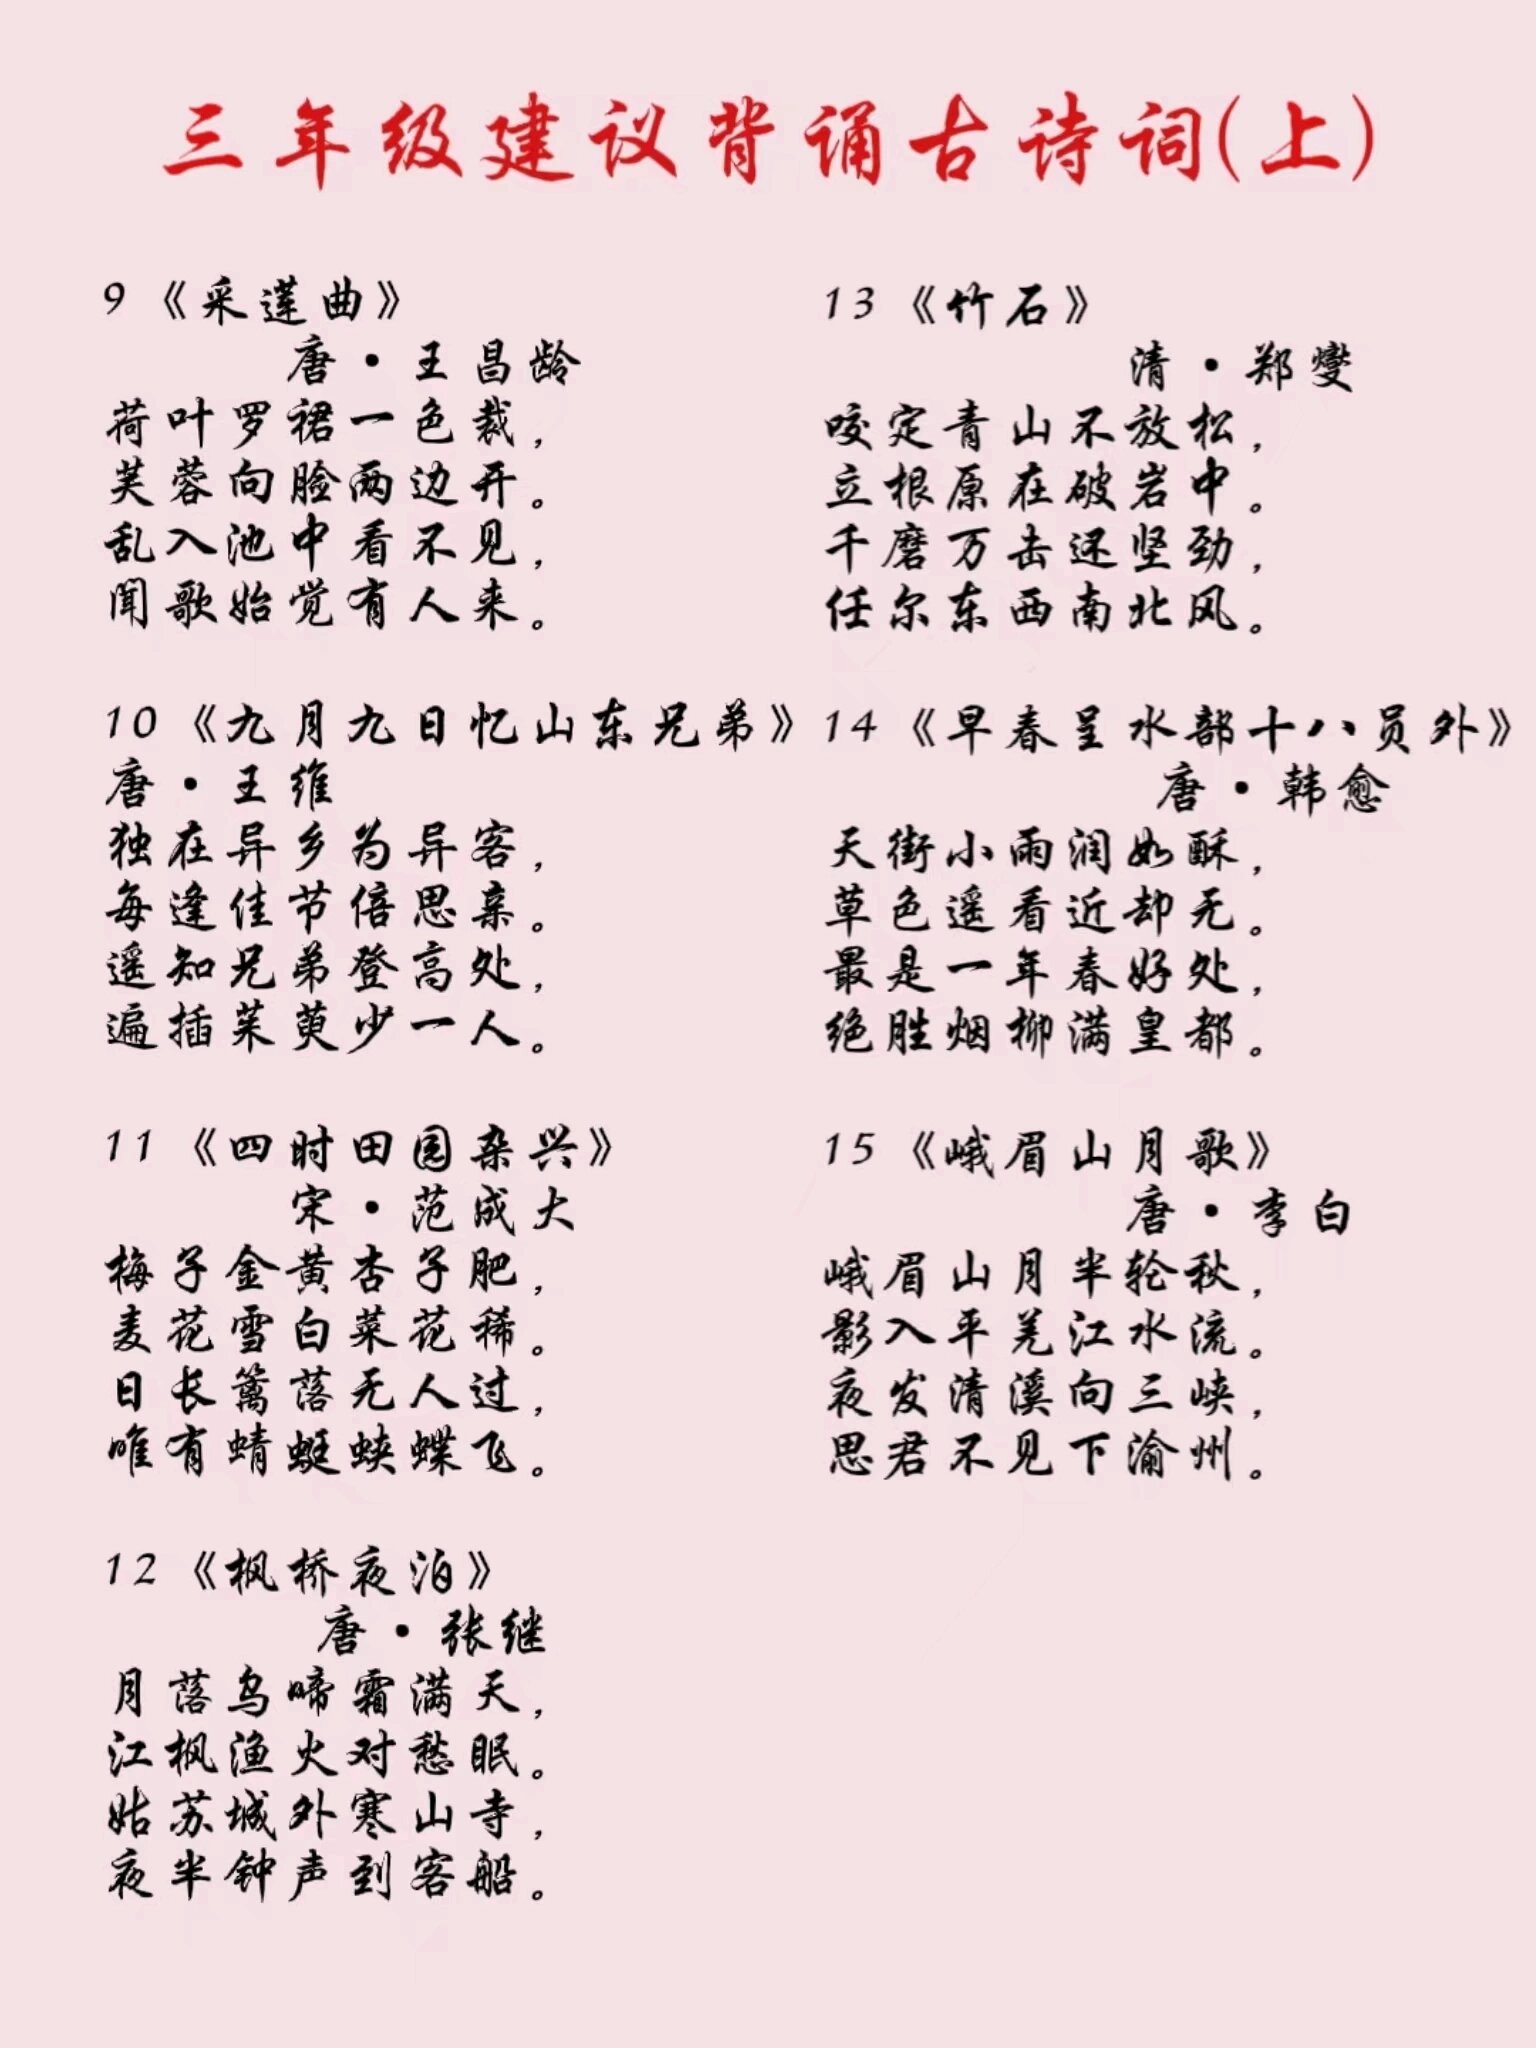 三年级建议背诵古诗词(上)
9《采莲曲》
唐·王昌龄
荷叶罗裙一色裁，
芙蓉向脸两边开。
乱入池中看不见，
闻歌始觉有人来。
10《九月九日忆山东兄弟》
唐·王维
独在异乡为异客，
每逢佳节倍思亲。
遥知兄弟登高处，
遍插茱萸少一人。
11《四时田园杂兴》
宋·范成大
梅子金黄杏子肥，
麦花雪白菜花稀。
日长篱落无人过，
唯有蜻蜓蛱蝶飞。
12《枫桥夜泊》
唐·张继
月落乌啼霜满天，
江枫渔火对愁眠。
姑苏城外寒山寺，
夜半钟声到客船。
13《竹石》
清·郑燮
咬定青山不放松，
立根原在破岩中。
千磨万击还坚劲，
任尔东西南北风。
14《早春呈水部十八员外》
唐·韩愈
天街小雨润如酥，
草色遥看近却无。
最是一年春好处，
绝胜烟柳满皇都。
15《峨眉山月歌》
唐·李白
峨眉山月半轮秋，
影入平羌江水流。
夜发清溪向三峡，
思君不见下渝州。